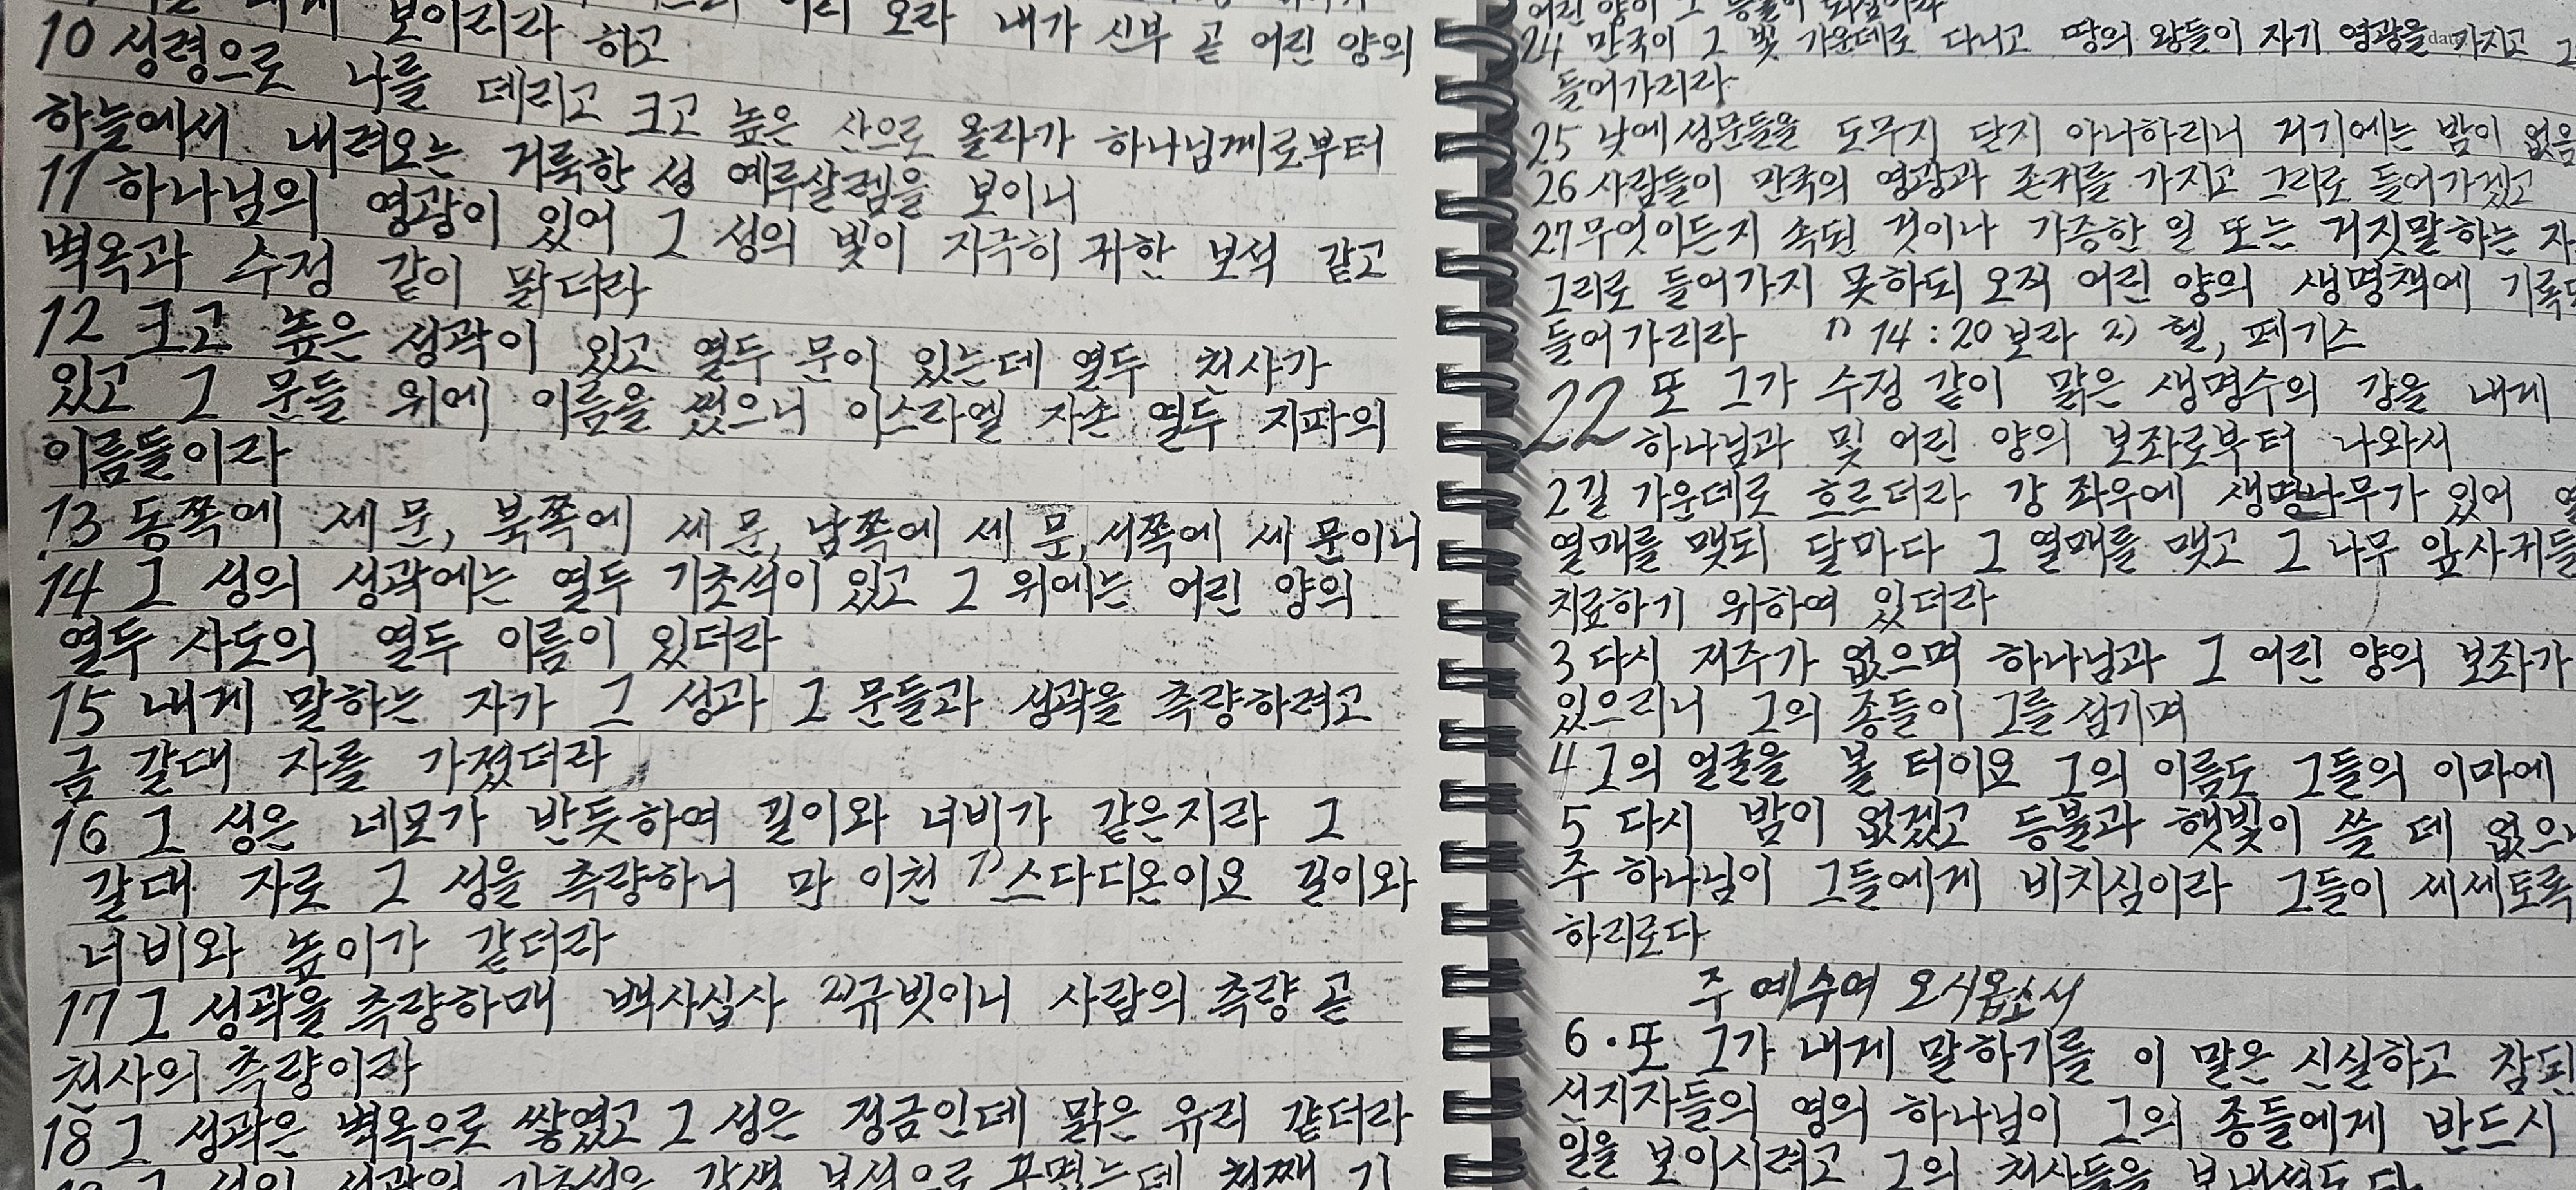 보이리라 하고 오라 내가 신부 곧 어린 양의
10 성령으로 나를 데리고 크고 높은 산으로 올라가 하나님께로부터
하늘에서 내려오는 거룩한 성 예루살렘을 보이니
11 하나님의 영광이 있어 그 성의 빛이 지극히 귀한 보석 같고
벽옥과 수정 같이 맑더라
12 크고 높은 성곽이 있고 열두 문이 있는데 열두 천사가
있고 그 문들 위에 이름을 썼으니 이스라엘 자손 열두 지파의
이름들이라
13 동쪽에 세 문, 북쪽에 세 문, 남쪽에 세 문, 서쪽에 세 문이니
14 그 성의 성곽에는 열두 기초석이 있고 그 위에는 어린 양의
열두 사도의 열두 이름이 있더라
15 내게 말하는 자가 그 성과 그 문들과 성곽을 측량하려고
금 갈대 자를 가졌더라
16 그 성은 네모가 반듯하여 길이와 너비가 같은지라 그
갈대 자로 그 성을 측량하니 만 이천 1)스다디온이요 길이와
너비와 높이가 같더라
17 그 성곽을 측량하매 백사십사 2)규빗이니 사람의 측량 곧
천사의 측량이라
18 그 성곽은 벽옥으로 쌓였고 그 성은 정금인데 맑은 유리 같더라
그 성의 성곽의 기초석은 각색 보석으로 꾸몄는데 첫째 기
어린 양이 그 등불이 되심이라
24 만국이 그 빛 가운데로 다니고 땅의 왕들이 자기 영광을 가지고 그
들어가리라
25 낮에 성문들을 도무지 닫지 아니하리니 거기에는 밤이 없음
26 사람들이 만국의 영광과 존귀를 가지고 그리로 들어가겠고
27 무엇이든지 속된 것이나 가증한 일 또는 거짓말하는 자
그리로 들어가지 못하되 오직 어린 양의 생명책에 기록
들어가리라 1) 14:20 보라 2) 헬, 페기스
22 또 그가 수정 같이 맑은 생명수의 강을 내게
하나님과 및 어린 양의 보좌로부터 나와서
2 길 가운데로 흐르더라 강 좌우에 생명나무가 있어 열
열매를 맺되 달마다 그 열매를 맺고 그 나무 잎사귀들
치료하기 위하여 있더라
3 다시 저주가 없으며 하나님과 그 어린 양의 보좌가
있으리니 그의 종들이 그를 섬기며
4 그의 얼굴을 볼 터이요 그의 이름도 그들의 이마에
5 다시 밤이 없겠고 등불과 햇빛이 쓸 데 없으
주 하나님이 그들에게 비치심이라 그들이 세세토록
하리로다
주 예수여 오시옵소서
6 · 또 그가 내게 말하기를 이 말은 신실하고 참된
선지자들의 영의 하나님이 그의 종들에게 반드시
일을 보이시려고 그의 천사들을 보내셨도다